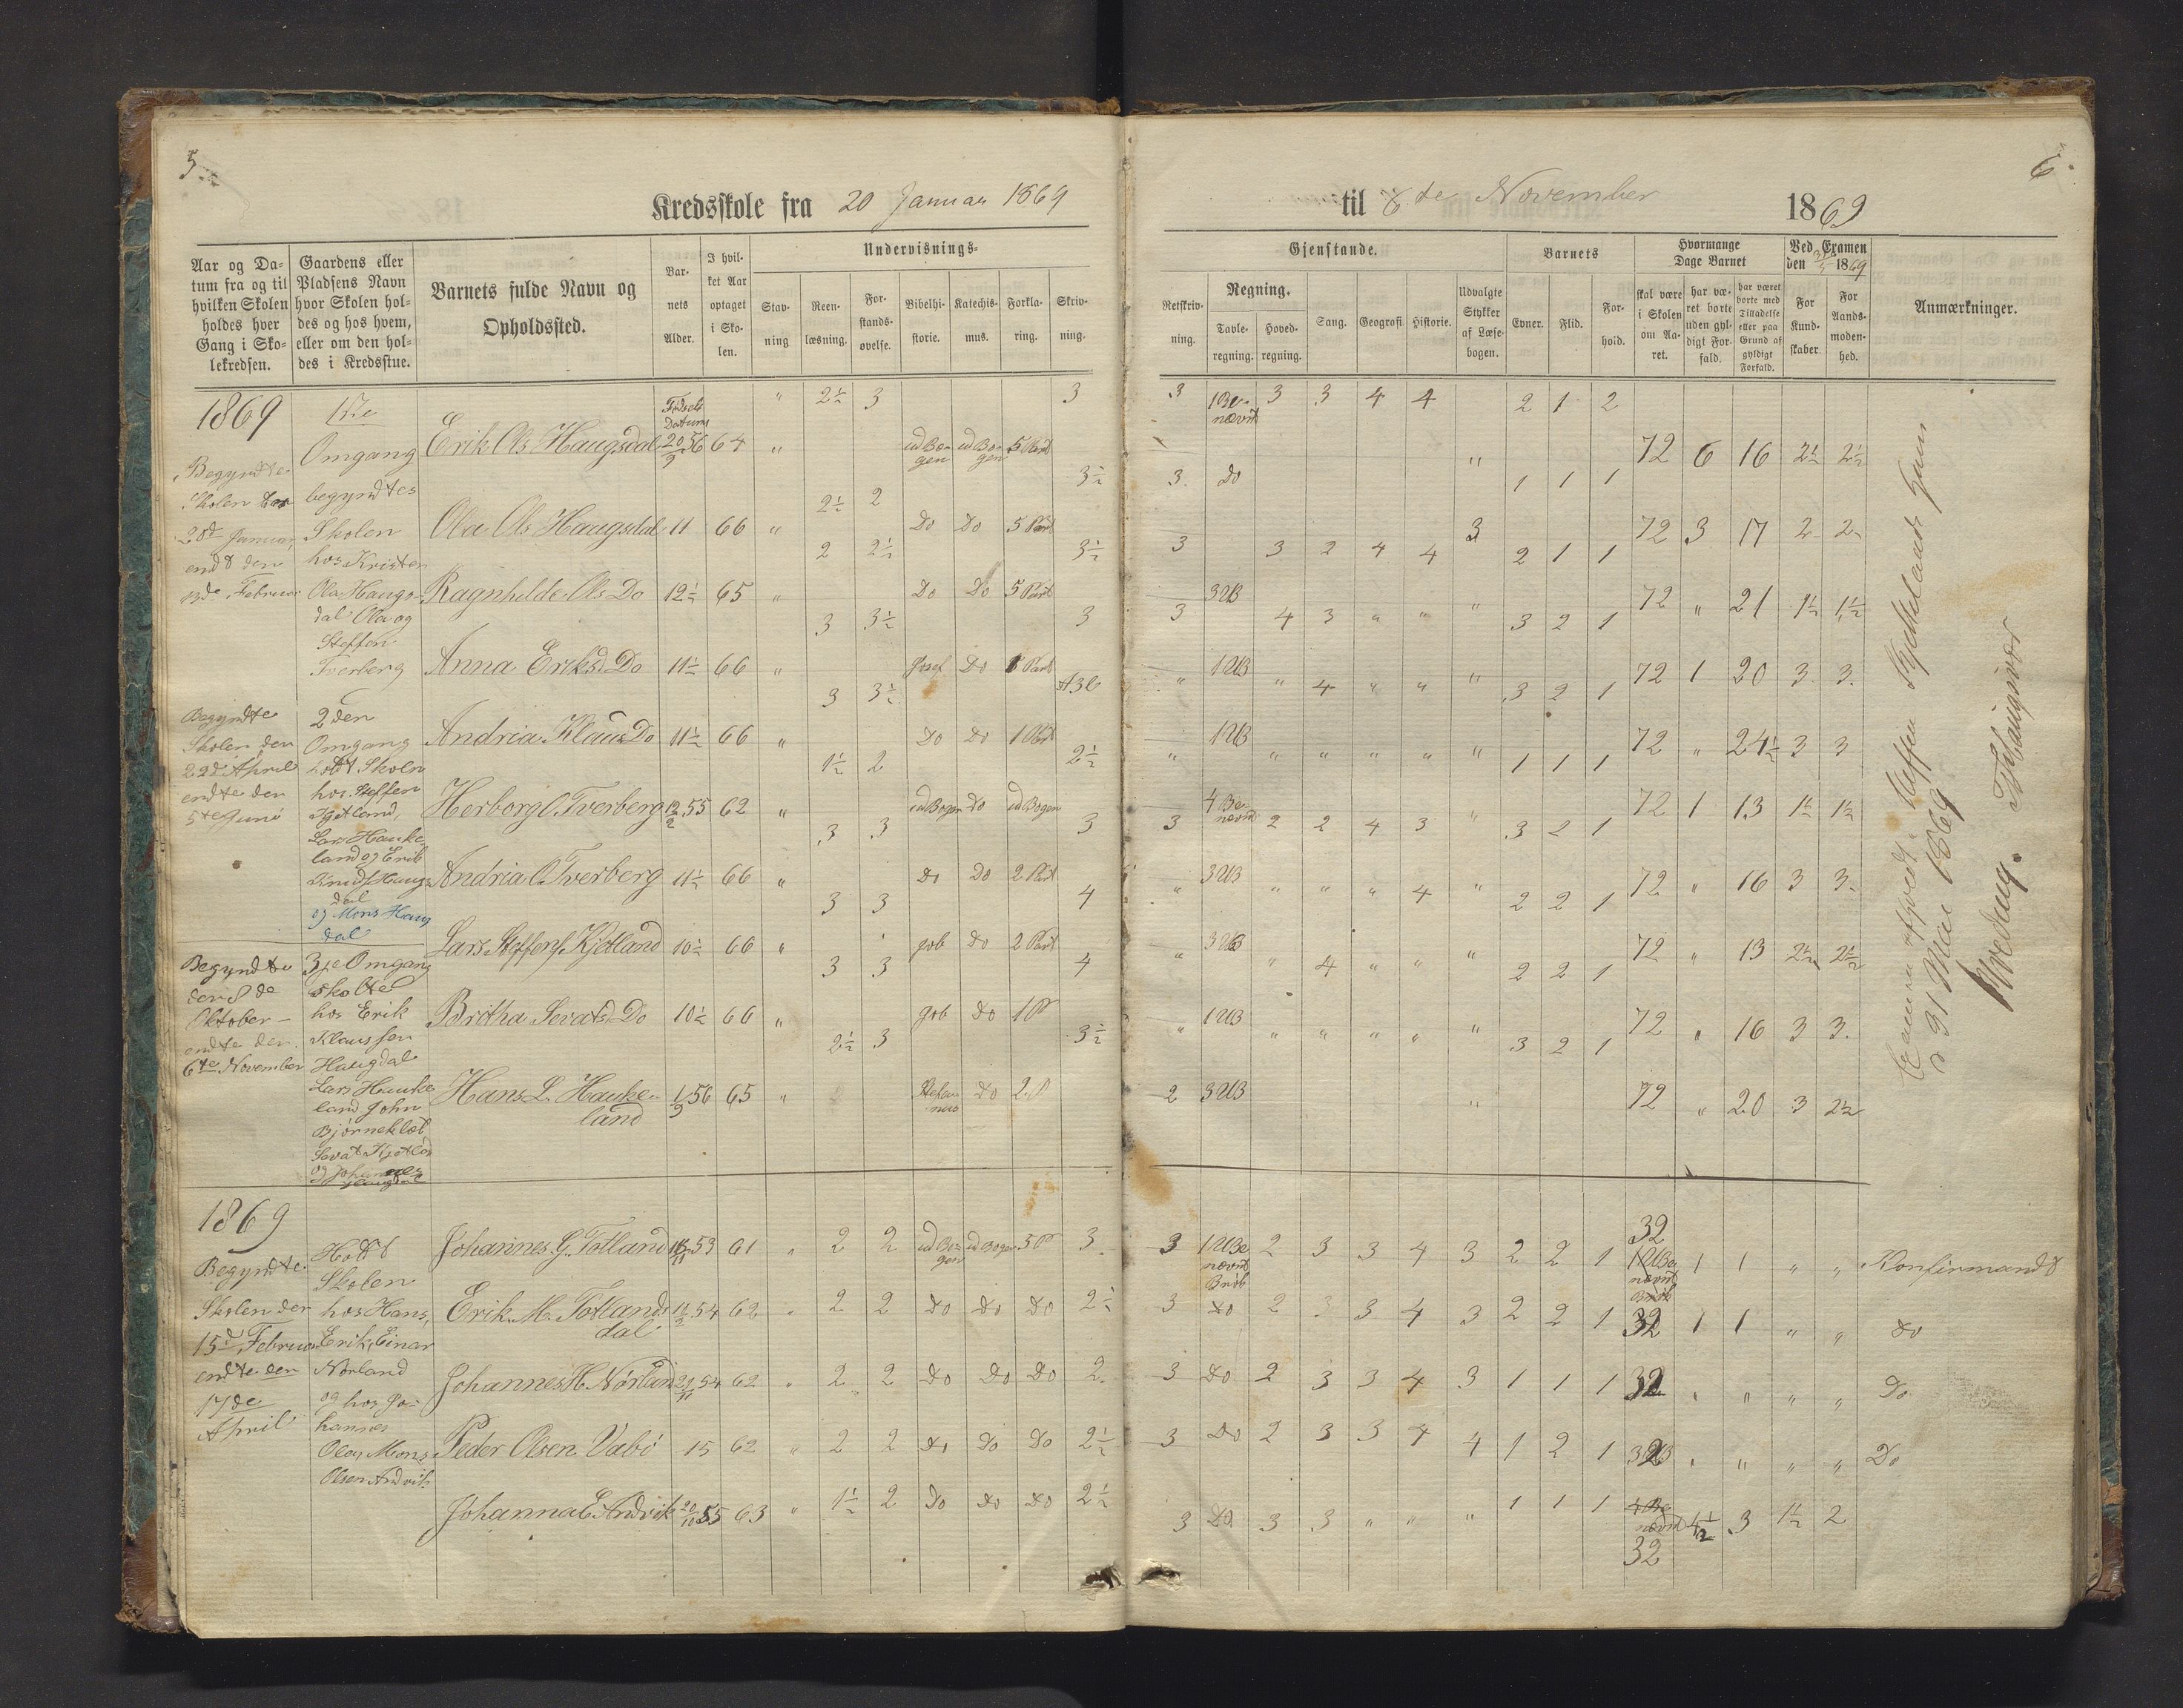 5
6
Kredsskole fra 20 Januar 1869
til 6te November 1869
Aar og Da-
tum fra og til
hvilken Skolen
holdes hver
Gang i Sko-
lekredsen.
Gaardens eller
Pladsens Navn
hvor Skolen hol-
des og hos hvem,
eller om den hol-
des i Kredsstue.
Barnets fulde Navn og
Opholdssted.
Bar-
nets
Alder.
I hvil-
ket Aar
optaget
i Sko-
len.
Undervisnings-
Stav-
ning
Reen-
læsning.
For-
stands-
øvelse.
Bibelhi-
storie.
Katechis-
mus.
Forkla-
ring.
Skriv-
ning.
Gjenstande.
Retskriv-
ning.
Regning.
Tavle-
regning.
Hoved-
regning.
Sang.
Geografi
Historie.
Udvalgte
Stykker
af Læse-
bogen.
Barnets
Evner.
Flid.
For-
hold.
Hvormange
Dage Barnet
skal være
i Skolen
om Aa-
ret.
har væ-
ret borte
uden gyl-
digt For-
fald.
har været
borte med
Tilladelse
eller paa
Grund af
gyldigt
Forfald.
Ved Examen
den 31/5 1869
For
Kund-
skaber
For
Aands-
moden-
hed.
Anmærkninger.
1869
Begyndte
Skolen den
Januar
endt den
13de Februar
1ste
Omgang
begyndtes
Skolen
hos Kristen
Ola Haugs-
dal Ola og
Steffen
Tverberg
Begyndte
Skolen den
22d April
endte den
5te Juni
2den
Omgang
holdt Skolen
hos Steffen
Kjetland,
Lars Hauke-
land og Erik
Knuds Haugs-
dal
og Mons Haug
dal
Begyndte
den 8de
Oktober
endte den
6te November
3je Omgang
hos Erik
Klaussen
Haugdal
Lars Hauke
land John
Fødsels
Datum
Erik Ols Haugsdal 20/9 56 64 " 2½ 3 ud Bo-gen ud Bo-gen 5 Part 3
3 1 Be-nævnt 3 3 4 4 " 2 1 2 72 6 16 2½ 2½
Ola Ols Haugsdal 11 66 " 2½ 2 Do Do 5 Part 3½
3. Do 3 1 1 1 72 3 17 2 2
Ragnhilde Ols Do 12½ 65 " 2 2½ Do Do 5 Part 3½
3 3UB 3 2 4 4 " 2 1 1 72 " 21 1½ 1½
Anna Eriksd Do 11½ 66 " 3 3½ Josef Do 1 Part 3
3 1UB 4 3 " " " 3 2 1 72 1 20 3 3
Andria Klausd Do 11½ 66 " 3 3½ Do Do 1 Part
" 1UB " 4 " " " 3 2 1 72 " 24½ 3 3
Herborg O. Tverberg 55 62 " 1½ 2 ud Bogen Do ud Bogen 2½
" 4 Be-nævnt " " " " " 1 1 1 72 1 13 1½ 1½
Andria O. Tverberg 11½ 66 " 3 3 Do Do 2 Part 3
3 3UB 2 2 4 3 " 3 2 1 72 " 16 3 3
Lars Steffens Kjetland 10½ 66 " 3 3 Job Do 2 Part 4
" 3UB " " " 4 " 2 2 1 72 " 13 2½ 2½
Britha Sevatsd Do 10½ 66 " 3 3 Job Do 1P 4
" 1UB " 4 " " " 2 2 1 72 " 16 3 3
Hans L. Hauke-
land 1/9 56 65 " 2½ 3 Do 2P 3½
2 3UB " " " " " 3 2 1 72 " 20 3 2½
31 Mai 1869
1869
Begyndte
Skolen den
15d Februar
endte den
17de
April
Holdt
Skolen
hos Hans,
Erik, Einar
Nørland
og hos Jo-
hannes
Ola, Mons
Olsen Andvik
Johannes G. Totland 53 61 " 2 2 ud Bo-gen ud Bogen 5P 3
3 1UBe nævnt Brøk 2 3 3 4 3 2 2 1 32 1 1 " " Konfirmandt
Erik M. Totlands
dal 54 62 " 2 2 Do Do Do 2½
3 Do 2 3 3 4 3 2 2 1 32 1 1 " " Do
Johannes H. Nørland 54 62 " 2 2 Do Do Do 2
3 Do 2 3 3 4 3 1 1 1 32 " " " " Do
Peder Olsen Vabø 15 62 " 2 2 Do Do Do 2½
3 Do 2 3 3 4 4 1 2 1 32 " " " " Do
Johanna E Andvik 20/10 55 63 " 1½ 2 Do Do Do 2½
3 Do 3 3 " " " 1 1 1 32 4½ 3 1½ 2